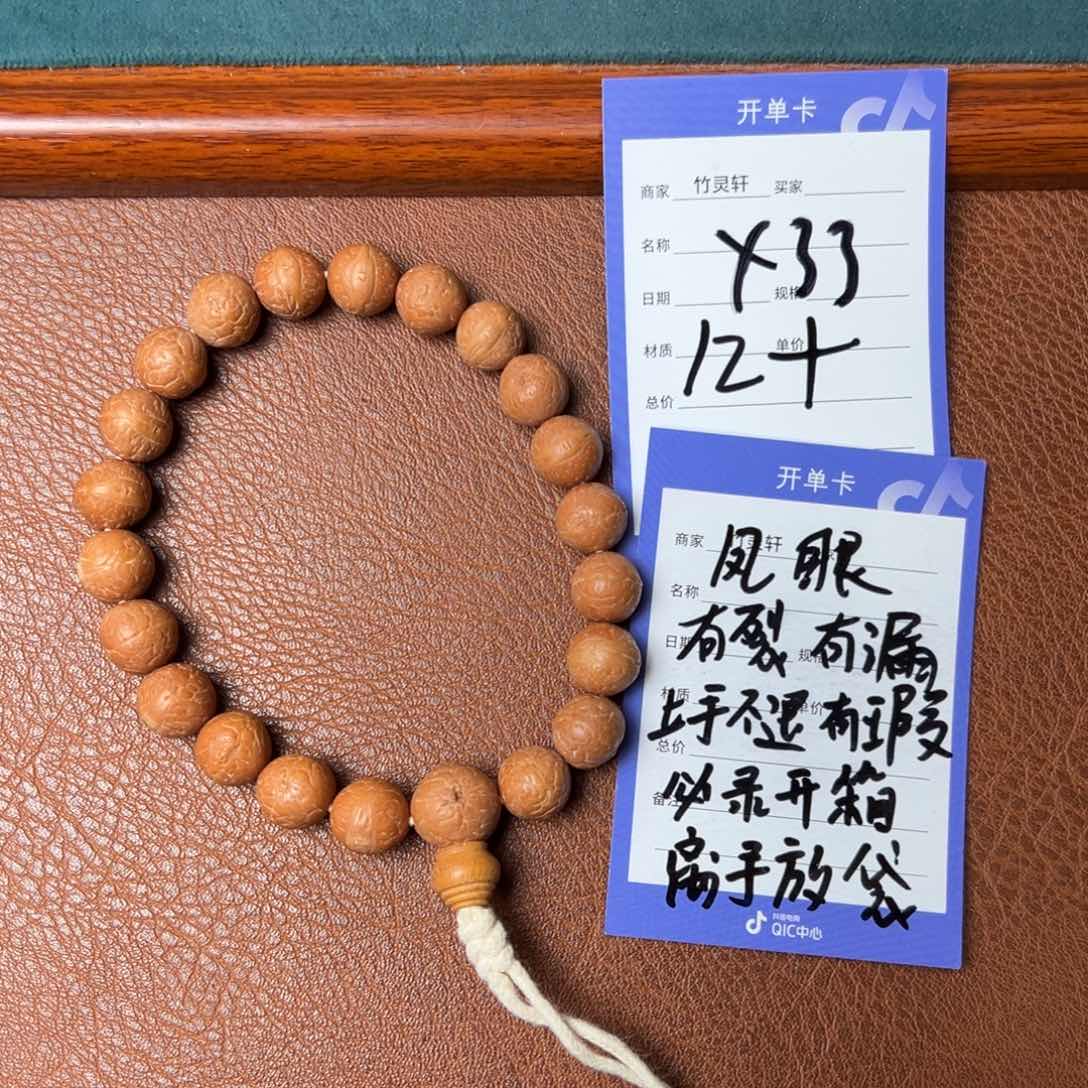 开单卡
商家 竹灵轩 买家
名称 Y33
日期 规格
材质 12+ 单价
总价
开单卡
商家 竹灵轩
凤眼
名称
有裂 有漏
日期 规格
上手不退 有瑕
材质 单价
总价
必录开箱
备注
离手放袋
抖音电商
QIC中心